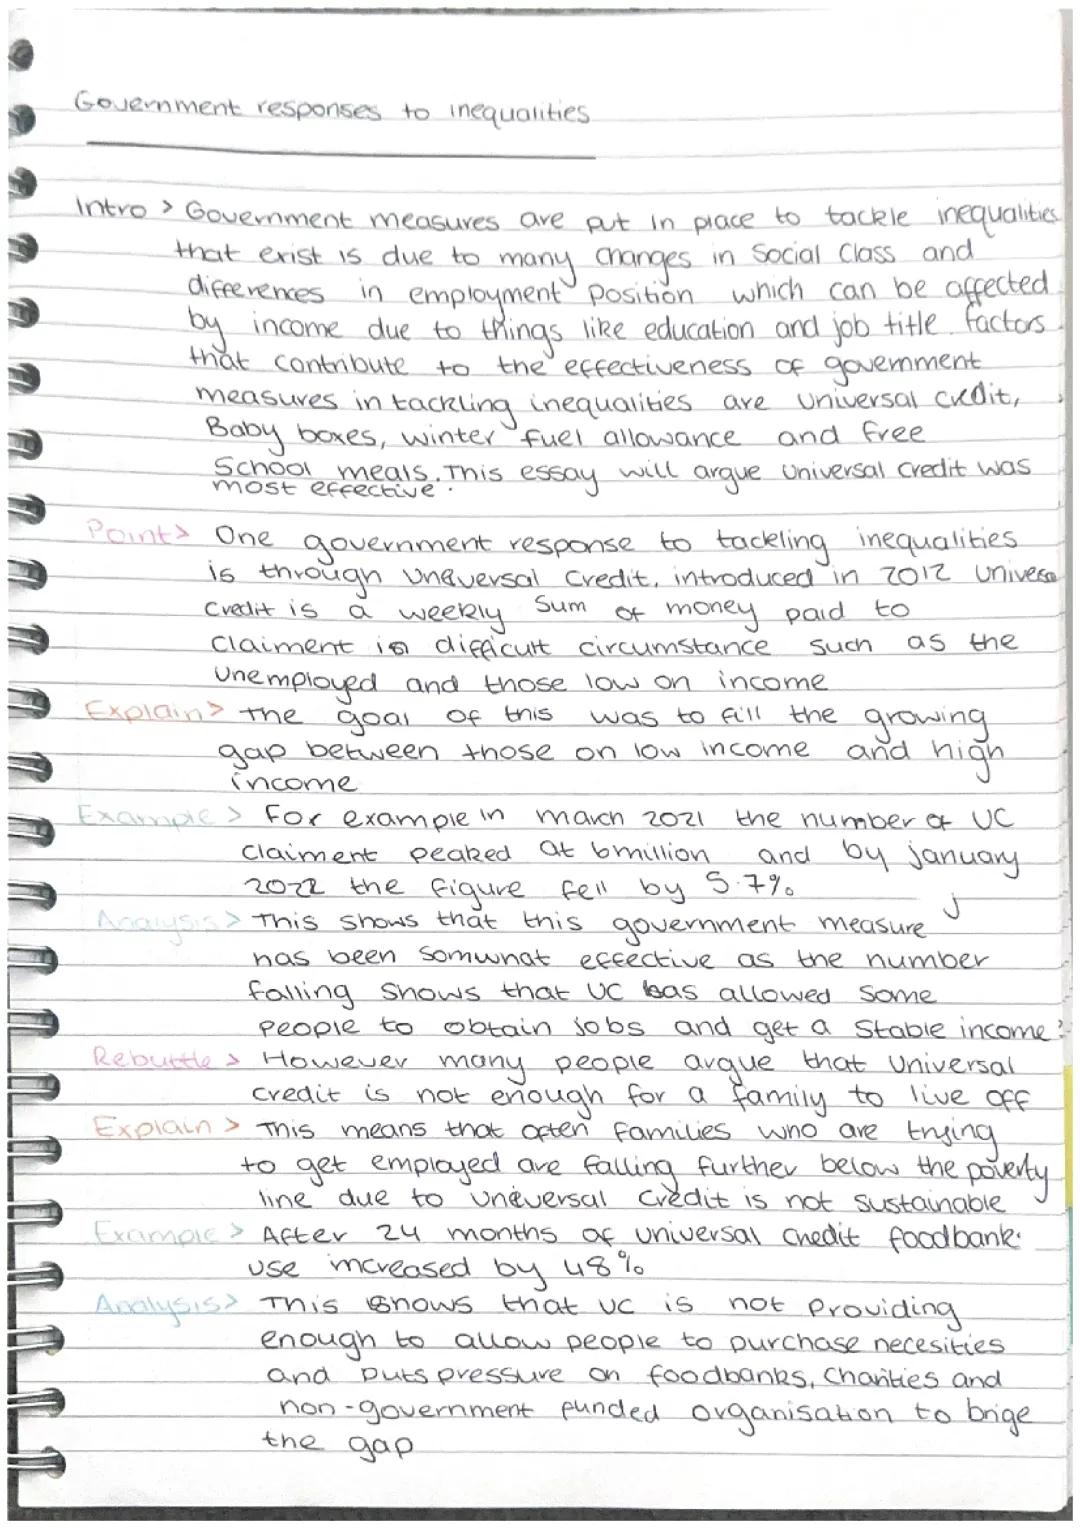 Government responses to inequalities
Intro > Government measures are put in place to tackle inequalities
that exist is due to many changes in Social Class and
differences in employment position which can be affected
by income due to things like education and job title. factors
that contribute to the effectiveness of government
measures in tackling inequalities are universal credit,
Baby boxes, winter fuel allowance and free
School meals. This essay will argue universal credit was
most effective.
Point> One government response to tackling inequalities
is through unaversal credit. introduced in 2012 univesa
Credit is a weekly sum of money paid to
Claiment in difficult circumstance such as the
unemployed and those low on income
Explain> The goal of this was to fill the growing
gap between those on low income and high
income
Example > For example in march 2021 the number of UC
Claiment peaked at 6million and by january
2022 the figure fell by 5.7%
Analysis > This shows that this government measure
has been somwhat effective as the number
falling shows that UC has allowed some
people to obtain jobs and get a stable income
Rebuttle > However many people argue that universal
credit is not enough for a family to live off
Explain > This means that often families who are trying
to get employed are falling further below the poverty
line due to uneversal credit is not sustainable
Example > After 24 months of universal credit foodbank
use increased by 48%
Analysis> This shows that UC is not providing
enough to allow people to purchase necesities
and puts pressure on foodbanks, Charities and
non-government funded organisation to brige
the gap